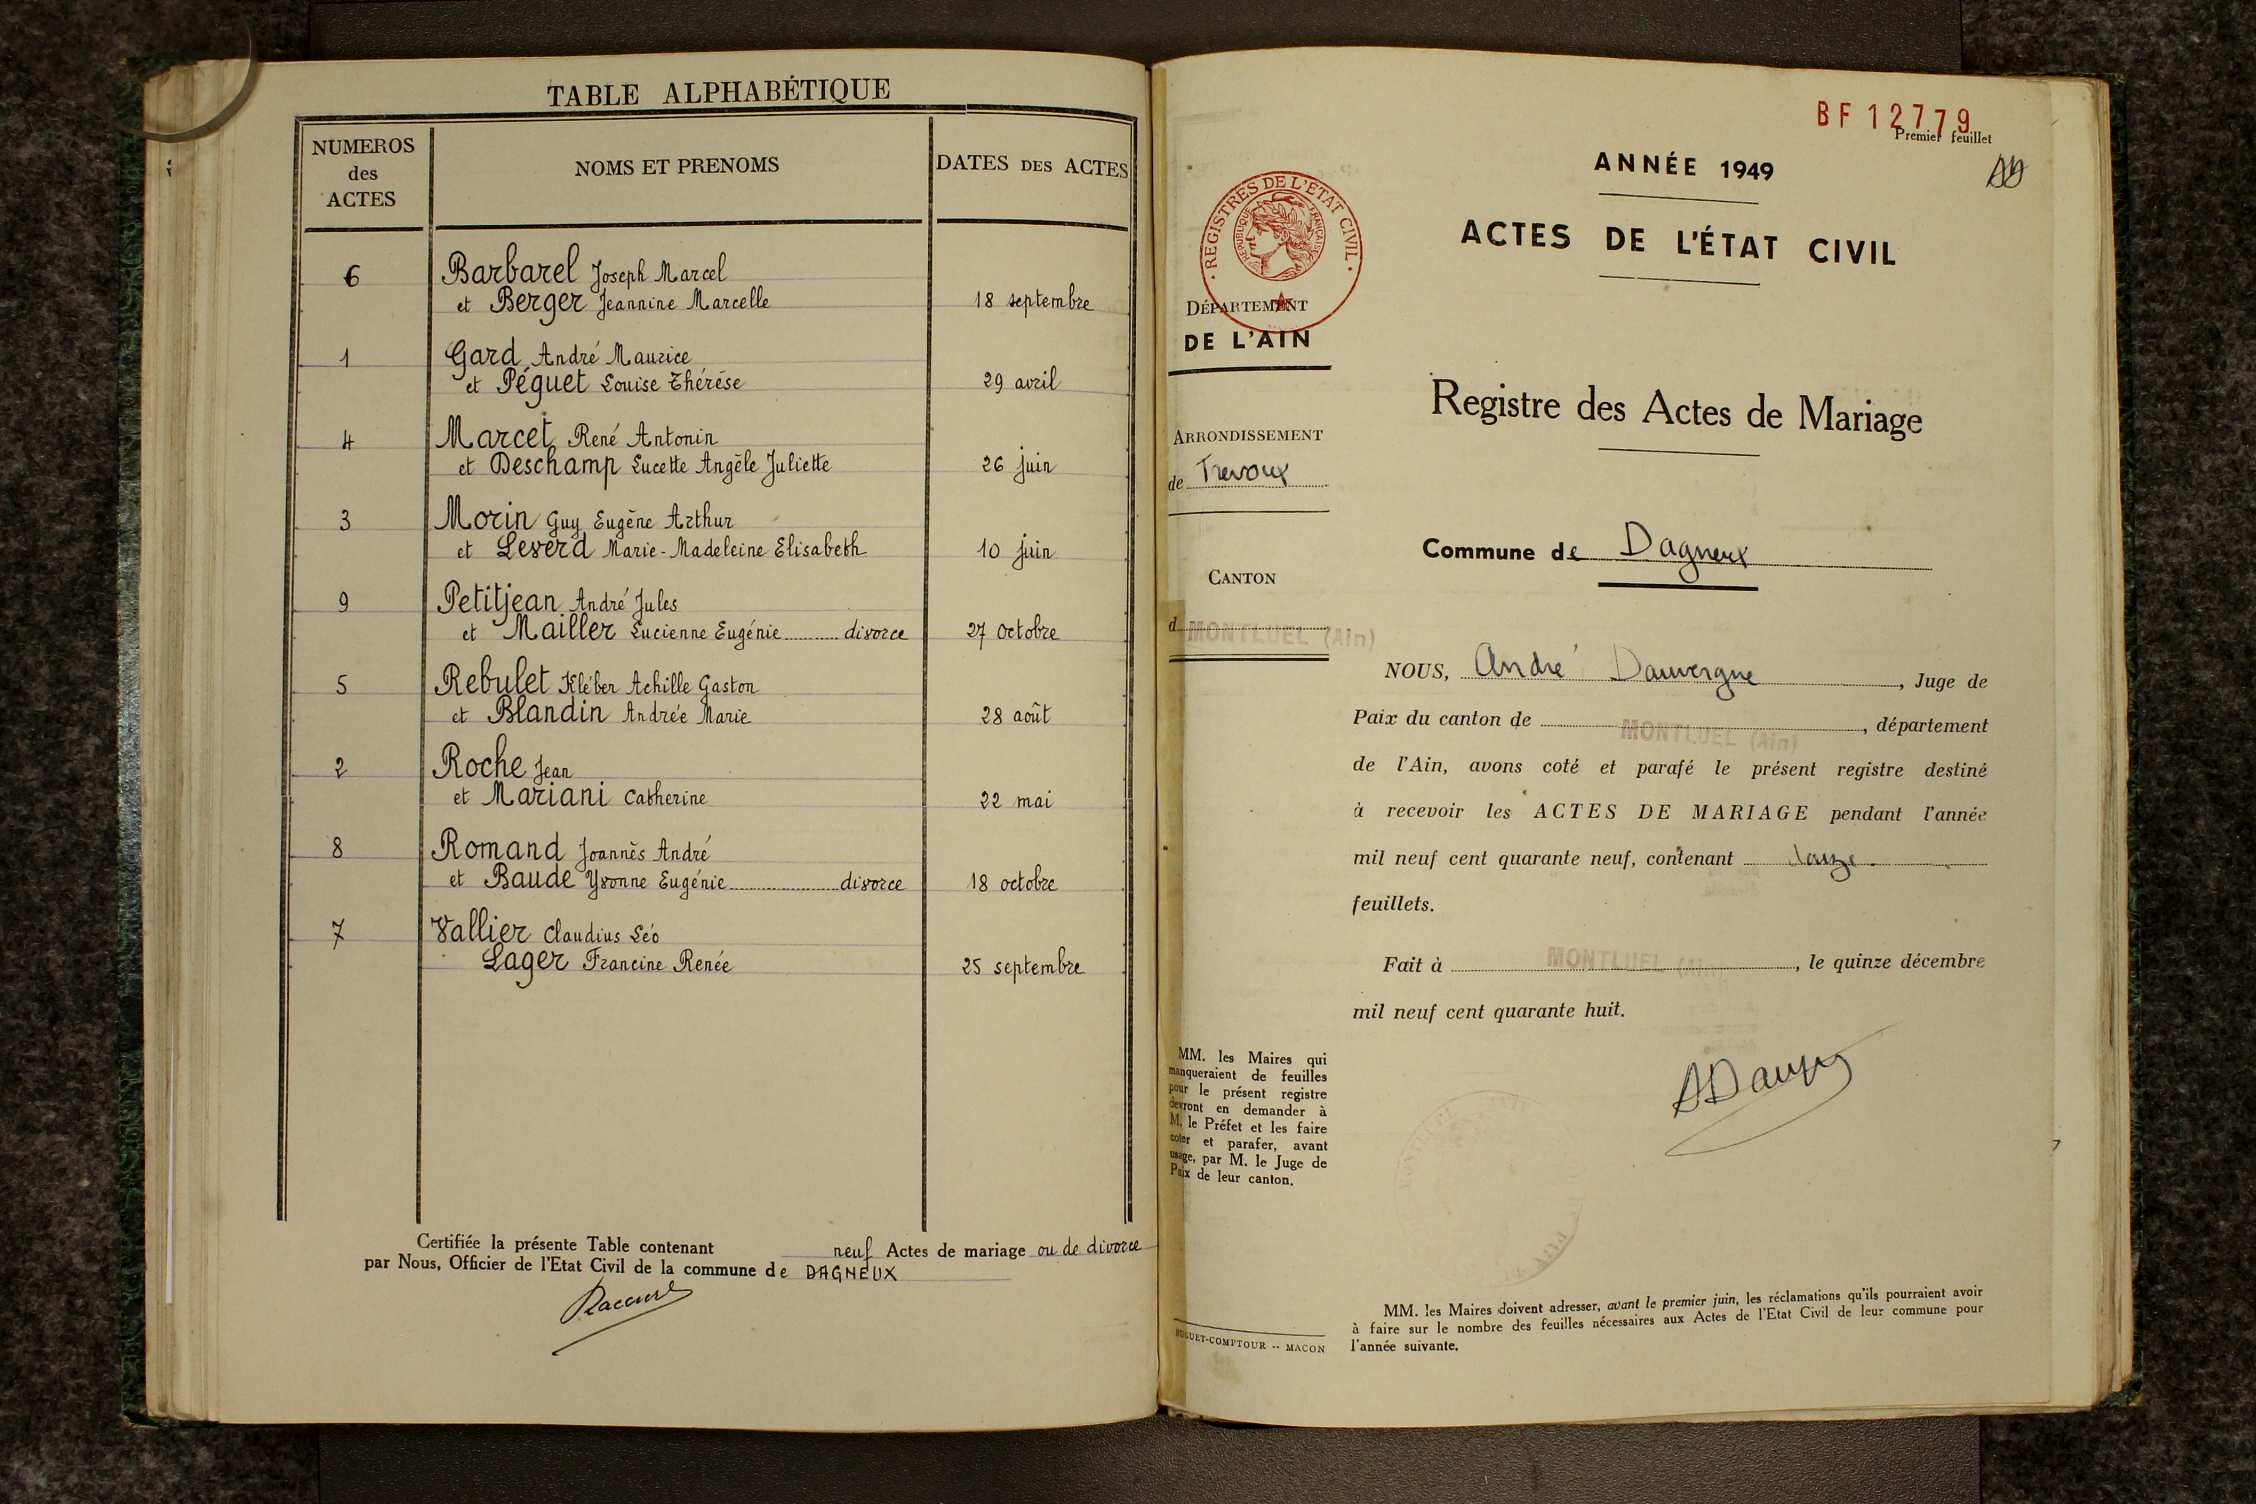 TABLE ALPHABÉTIQUE
NUMEROS
des
ACTES
NOMS ET PRENOMS
DATES DES ACTES
6 Barbarel Joseph Marcel
et Berger Jeannine Marcelle 18 septembre
1 Gard André Maurice
et Péguet Louise Thérèse 29 avril
4 Marcet René Antonin
et Deschamp Lucette Angèle Juliette 26 juin
3 Morin Guy Eugène Arthur
et Leverd Marie-Madeleine Elisabeth 10 juin
9 Petitjean André Jules
et Mailler Lucienne Eugénie divorce 27 octobre
5 Rebulet Kléber Achille Gaston
et Blandin Andrée Marie 28 août
2 Roche Jean
et Mariani Catherine 22 mai
8 Romand Joannès André
et Baude Yvonne Eugénie divorce 18 octobre
7 Vallier Claudius Léo
Lager Francine Renée 25 septembre
Certifiée la présente Table contenant neuf Actes de mariage ou de divorce
par Nous, Officier de l'Etat Civil de la commune de DAGNEUX
BF 12779
Premier feuillet
AD
ANNÉE 1949
ACTES DE L'ÉTAT CIVIL
REGISTRES DE L'ETAT CIVIL
REPUBLIQUE FRANÇAISE
DÉPARTEMENT
DE L'AIN
Registre des Actes de Mariage
ARRONDISSEMENT
de Trevoux
Commune de Dagneux
CANTON
d MONTLUEL (Ain)
NOUS, André Dauvergne, Juge de
Paix du canton de MONTLUEL (Ain), département
de l'Ain, avons coté et parafé le présent registre destiné
à recevoir les ACTES DE MARIAGE pendant l'année
mil neuf cent quarante neuf, contenant
feuillets.
Fait à MONTLUEL (Ain), le quinze décembre
mil neuf cent quarante huit.
MM. les Maires qui
manqueraient de feuilles
pour le présent registre
devront en demander à
M. le Préfet et les faire
coter et parafer, avant
usage, par M. le Juge de
Paix de leur canton.
MM. les Maires doivent adresser, avant le premier juin, les réclamations qu'ils pourraient avoir
à faire sur le nombre des feuilles nécessaires aux Actes de l'Etat Civil de leur commune pour
l'année suivante.
HUGUET-COMPTOUR -- MACON